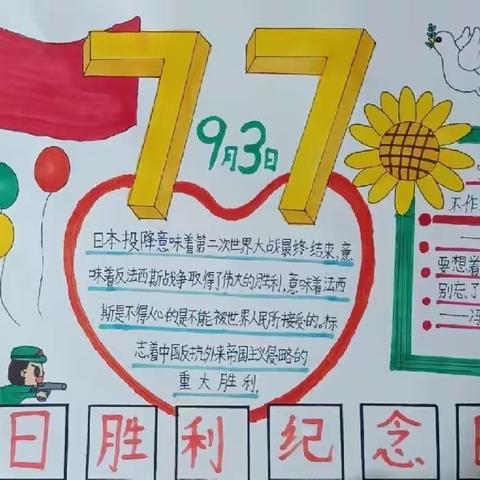 77
9月3日
日本投降意味着第二次世界大战最终结束,意
味着反法西斯战争取得了伟大的胜利,意味着法西
斯是不得人心的是不能被世界人民所接受的。标
志着中国反抗外来帝国主义侵略的
重大胜利
不作
要想着
别忘了
——冯
日胜利纪念日